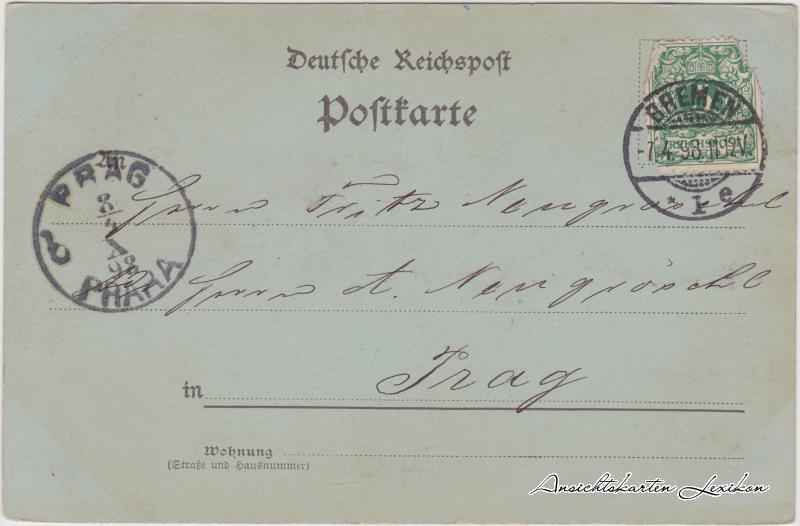 Deutsche Reichspost
Postkarte
BREMEN
-7.4.98.11-12V.
* 1 e
An
PRAG
8
4
98
PRAHA
Herrn Fritz Neugröschl
bei Herrn A. Neugröschl
in Prag
Wohnung
(Straße und Hausnummer)
Ansichtskarten Lexikon